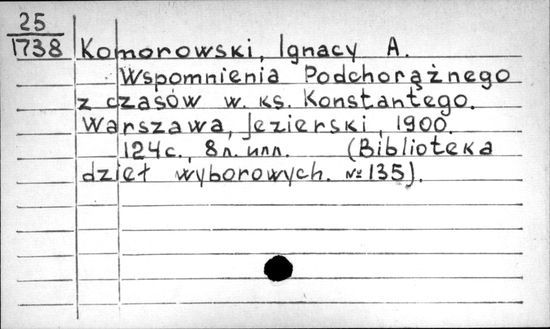 25
1738
Komorowski, Ignacy A.
Wspomnienia Podchorążnego
z czasów w. ks. Konstantego.
Warszawa, Jezierski, 1900.
124с., 8л. илл. (Biblioteka
dzieł wyborowych. №135).